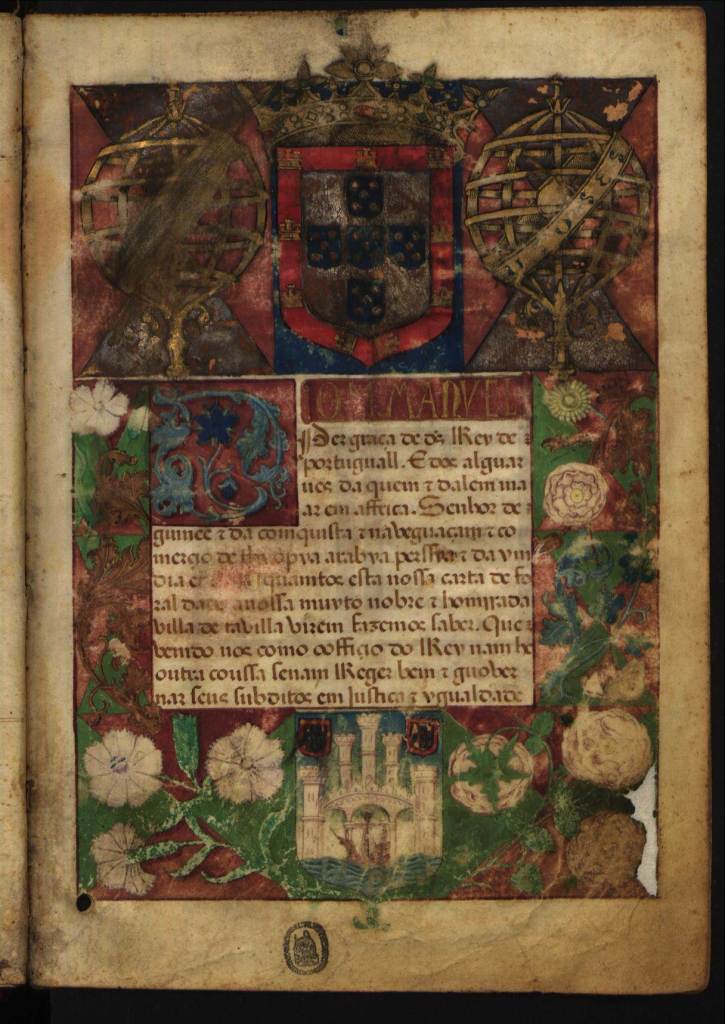 DOM MANUEL
Per graça de ds Rey de
portuguall. E dos alguar
ues da quem ⁊ dalem ma
ar em affrica. Senhor de
guinee ⁊ da comquista ⁊ naueguaçam ⁊ co
mercio de arabya perssya ⁊ da yn
dia quamtos esta nossa carta de fo
ral a nossa muyto nobre ⁊ homrrada
villa de tauilla virem fazemos saber. Que
vemdo nos como offiçio do Rey nam he
outra coussa senam Reger bem ⁊ guober
nar seus subditos em Justiça ⁊ ygualdade